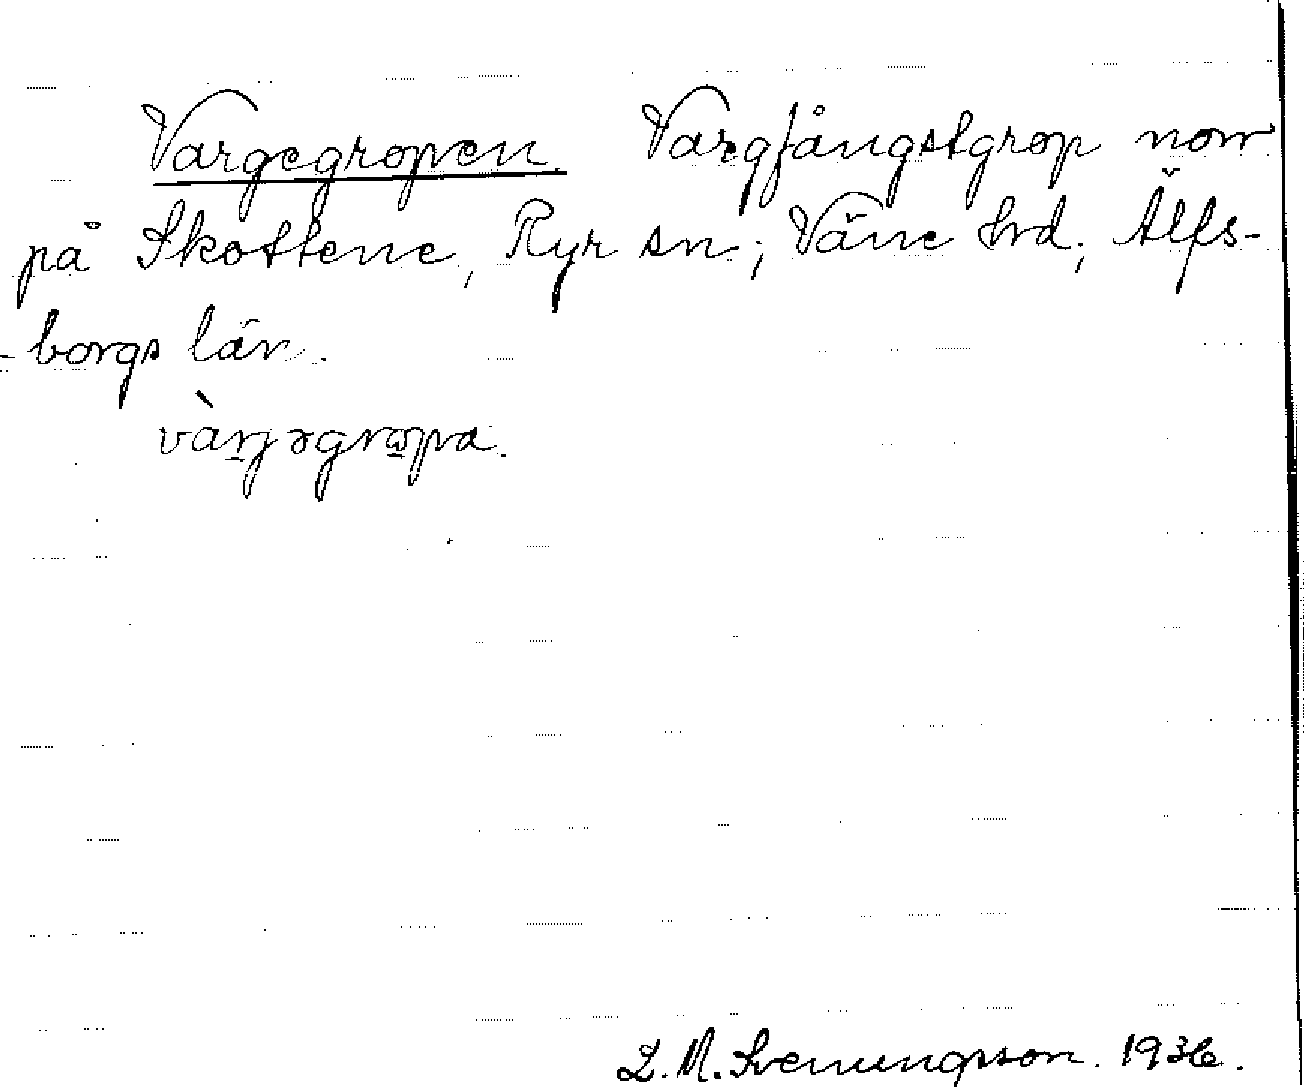 Vargegropen. Vargfångstgrop norr
på Skottene, Ryr sn; Väne hrd; Älfs-
-borgs län.
vàrjəgropa.
L. M. Svenungsson. 1936.